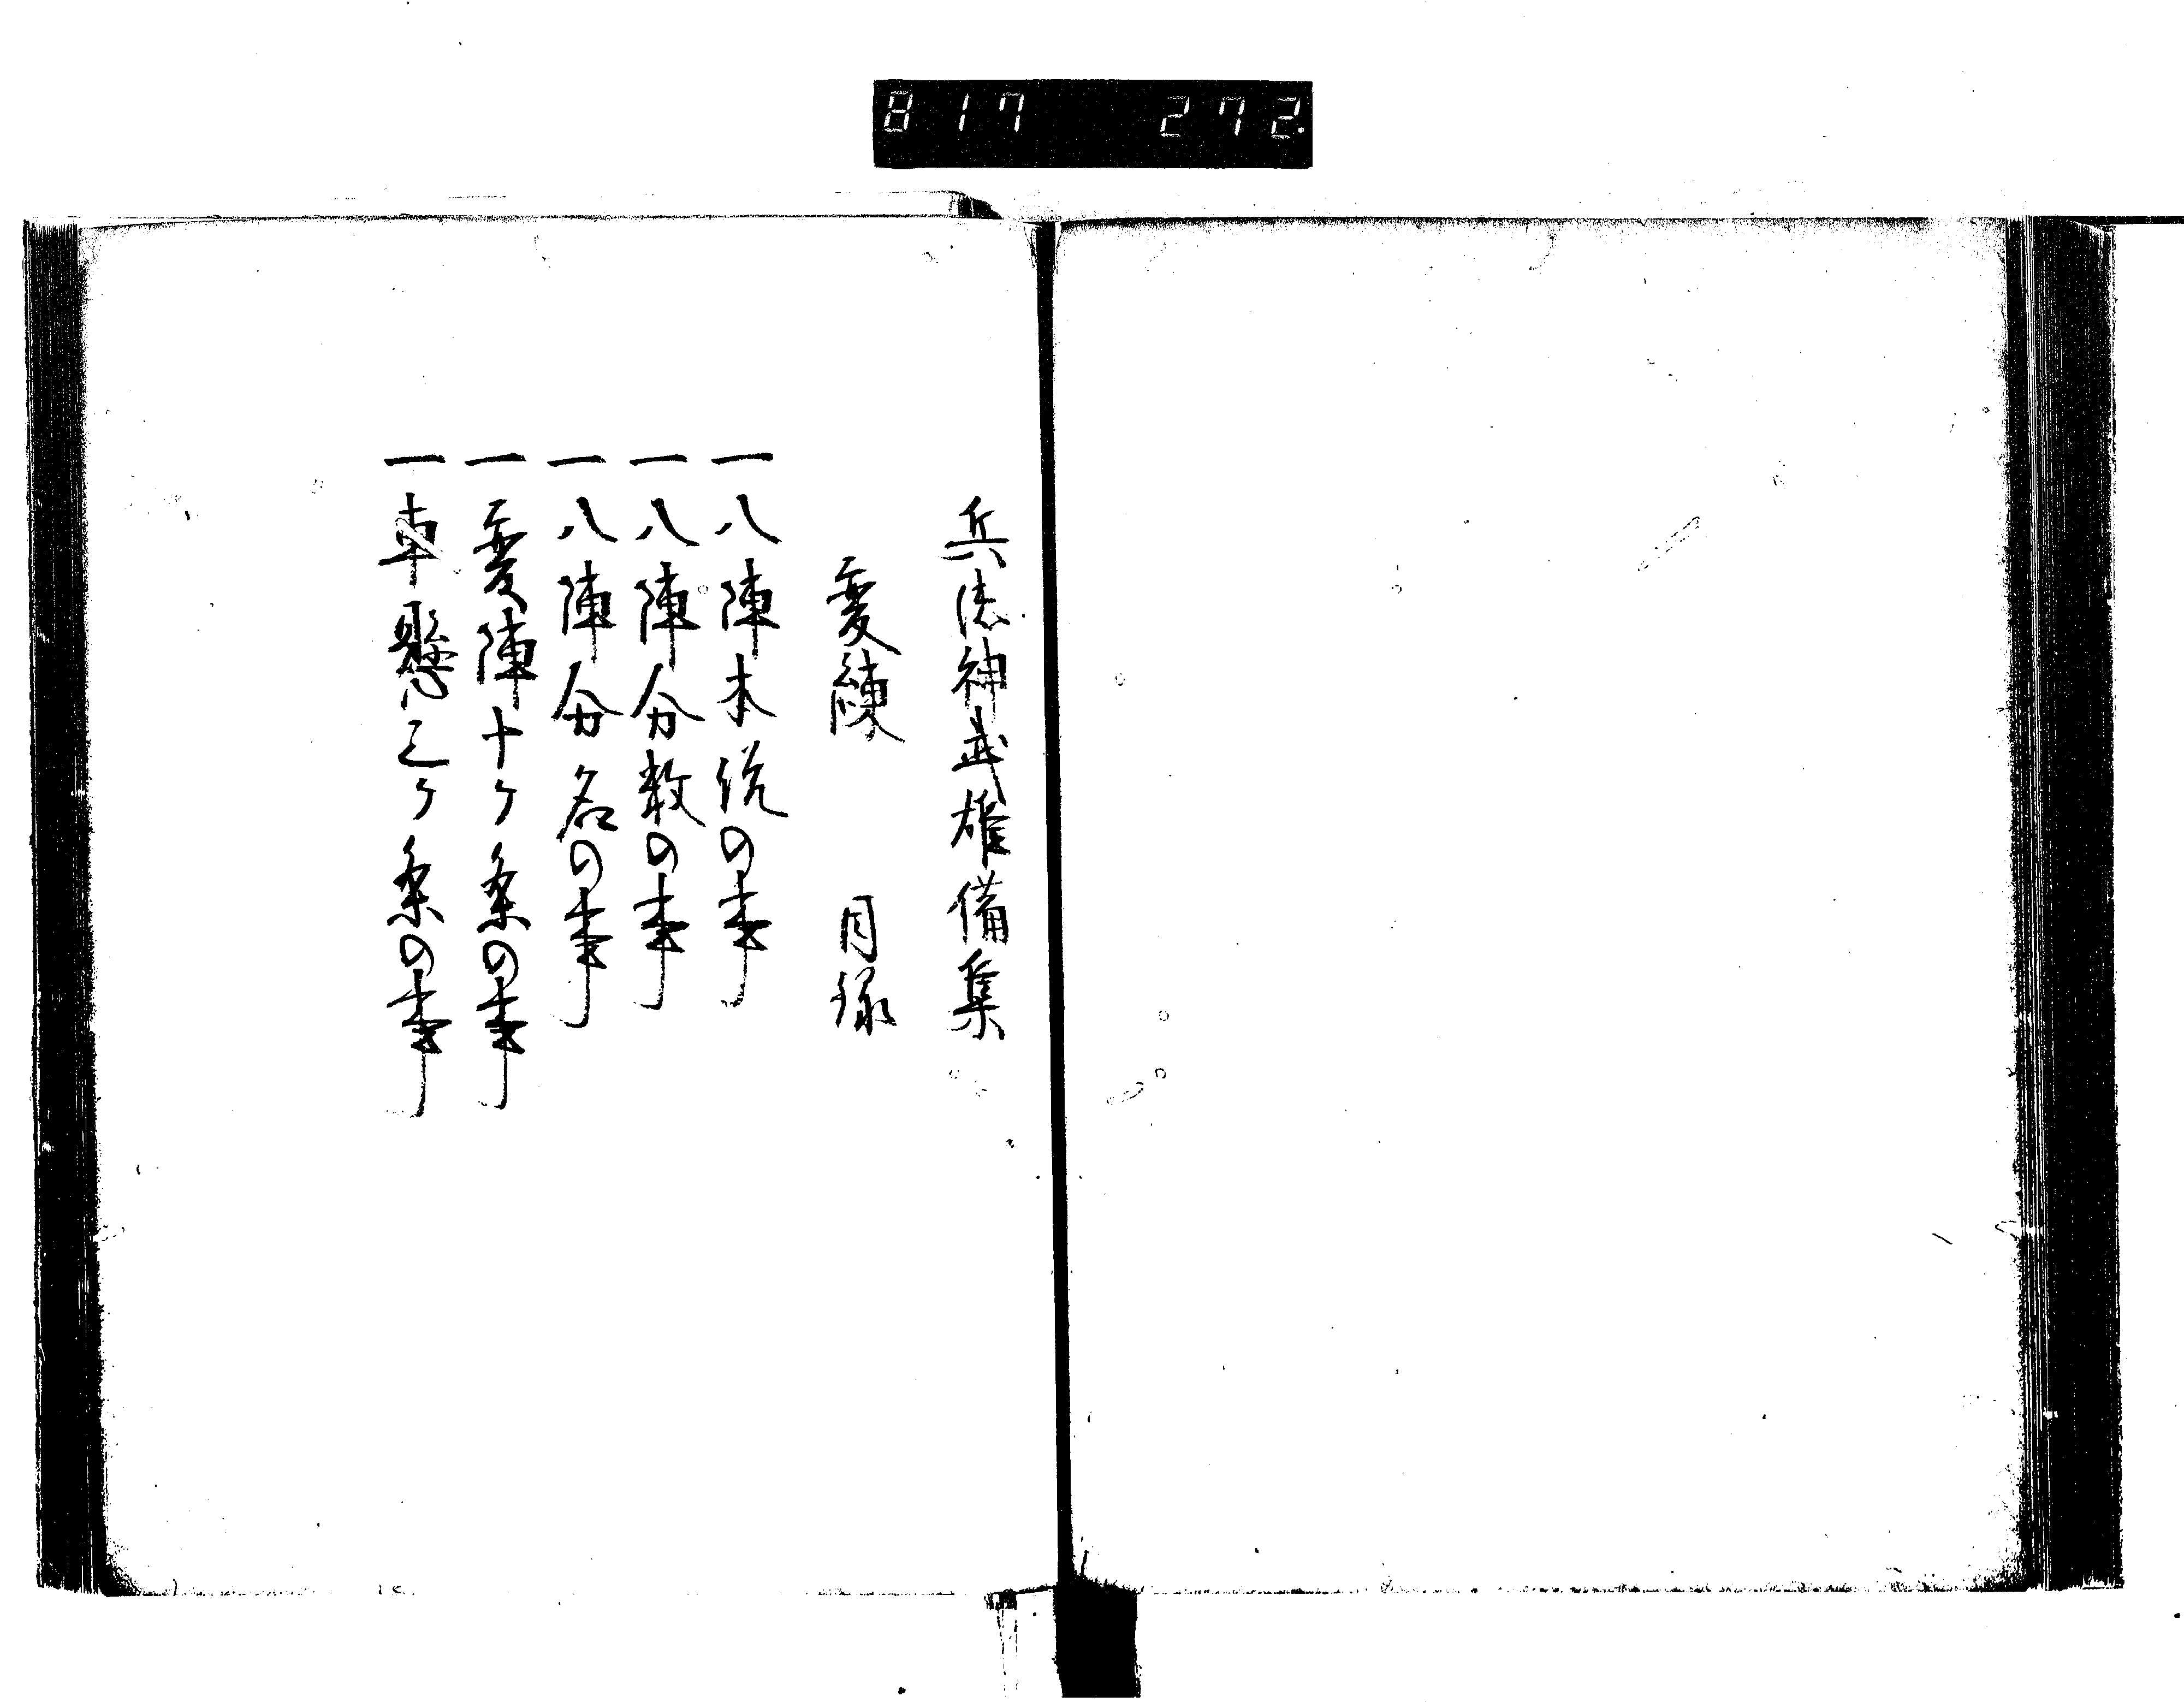 817 272
兵法神武雄備集
変練 目録
一八陣本説の事
一八陣分数の事
一八陣分名の事
一変陣十ケ条の事
一車懸三ケ条の事